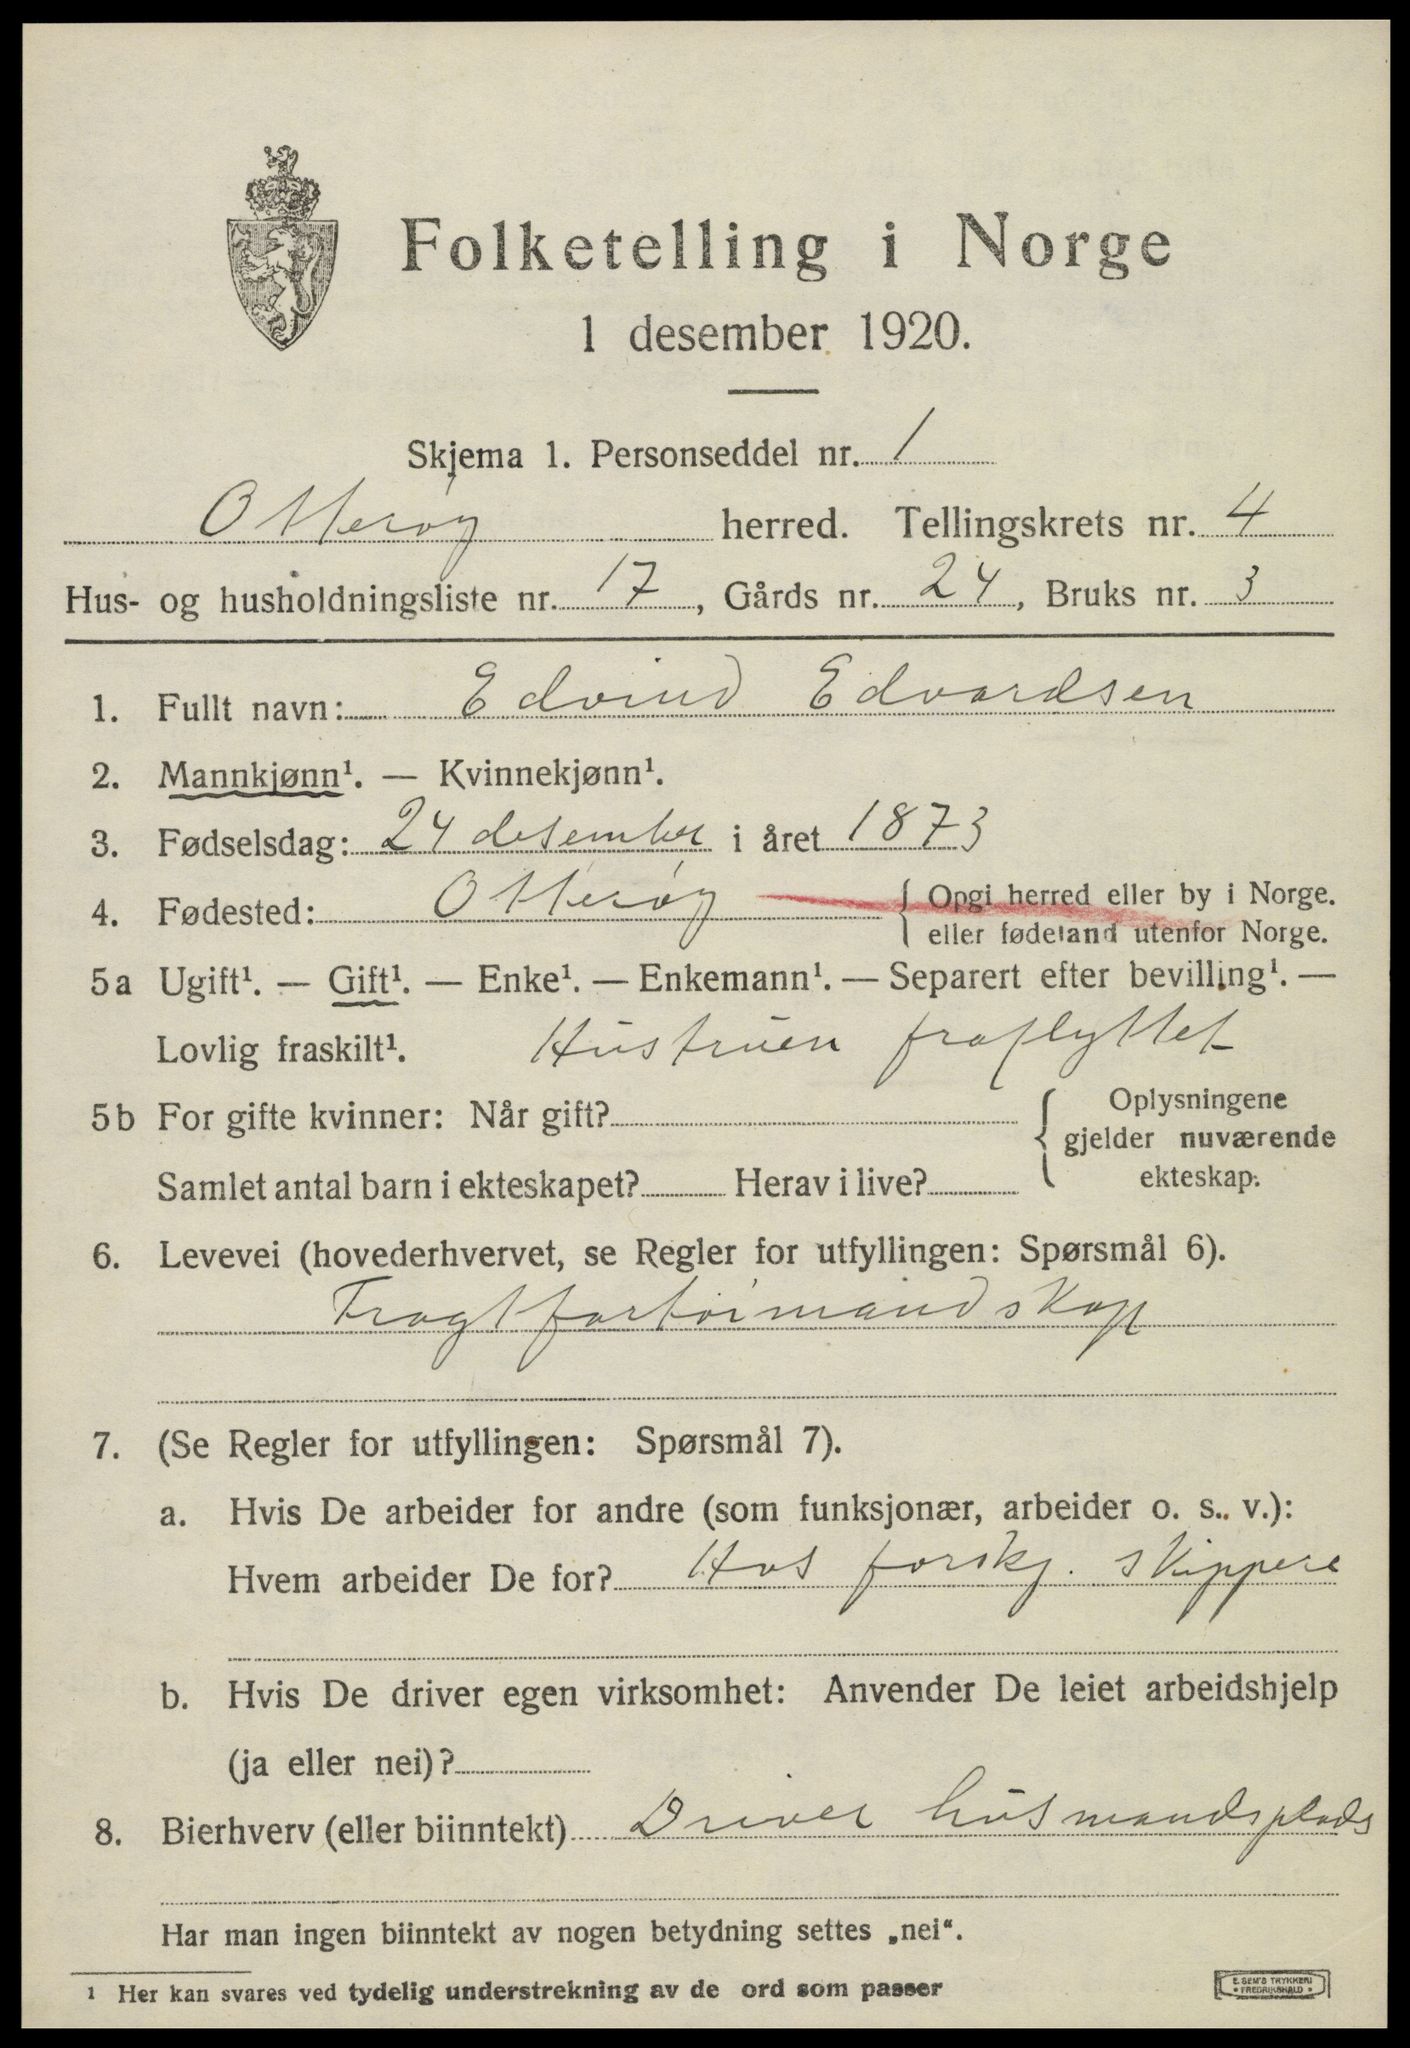 Folketelling i Norge
1 desember 1920.
Skjema 1. Personseddel nr. 1
Otterøy herred. Tellingskrets nr. 4
Hus- og husholdningsliste nr. 17, Gårds nr. 24, Bruks nr. 3
1. Fullt navn: Edvind Edvardsen
2. Mannkjønn¹. — Kvinnekjønn¹.
3. Fødselsdag: 24 desember i året 1873
4. Fødested: Otterøy { Opgi herred eller by i Norge.
eller fødeland utenfor Norge.
5a Ugift¹. — Gift¹. — Enke¹. — Enkemann¹. — Separert efter bevilling¹. —
Lovlig fraskilt¹. Hustruen fraflyttet
5b For gifte kvinner: Når gift?
Samlet antal barn i ekteskapet? Herav i live?
{ Oplysningene
gjelder nuværende
ekteskap.
6. Levevei (hovederhvervet, se Regler for utfyllingen: Spørsmål 6).
Fragtfartøimandskap
7. (Se Regler for utfyllingen: Spørsmål 7).
a. Hvis De arbeider for andre (som funksjonær, arbeider o. s. v.):
Hvem arbeider De for? Hos forskj. skippere
b. Hvis De driver egen virksomhet: Anvender De leiet arbeidshjelp
(ja eller nei)?
8. Bierhverv (eller biinntekt) Driver husmandsplads
Har man ingen biinntekt av nogen betydning settes „nei“.
¹ Her kan svares ved tydelig understrekning av de ord som passer
E. SEM'S TRYKKERI
• FREDRIKSHALD •